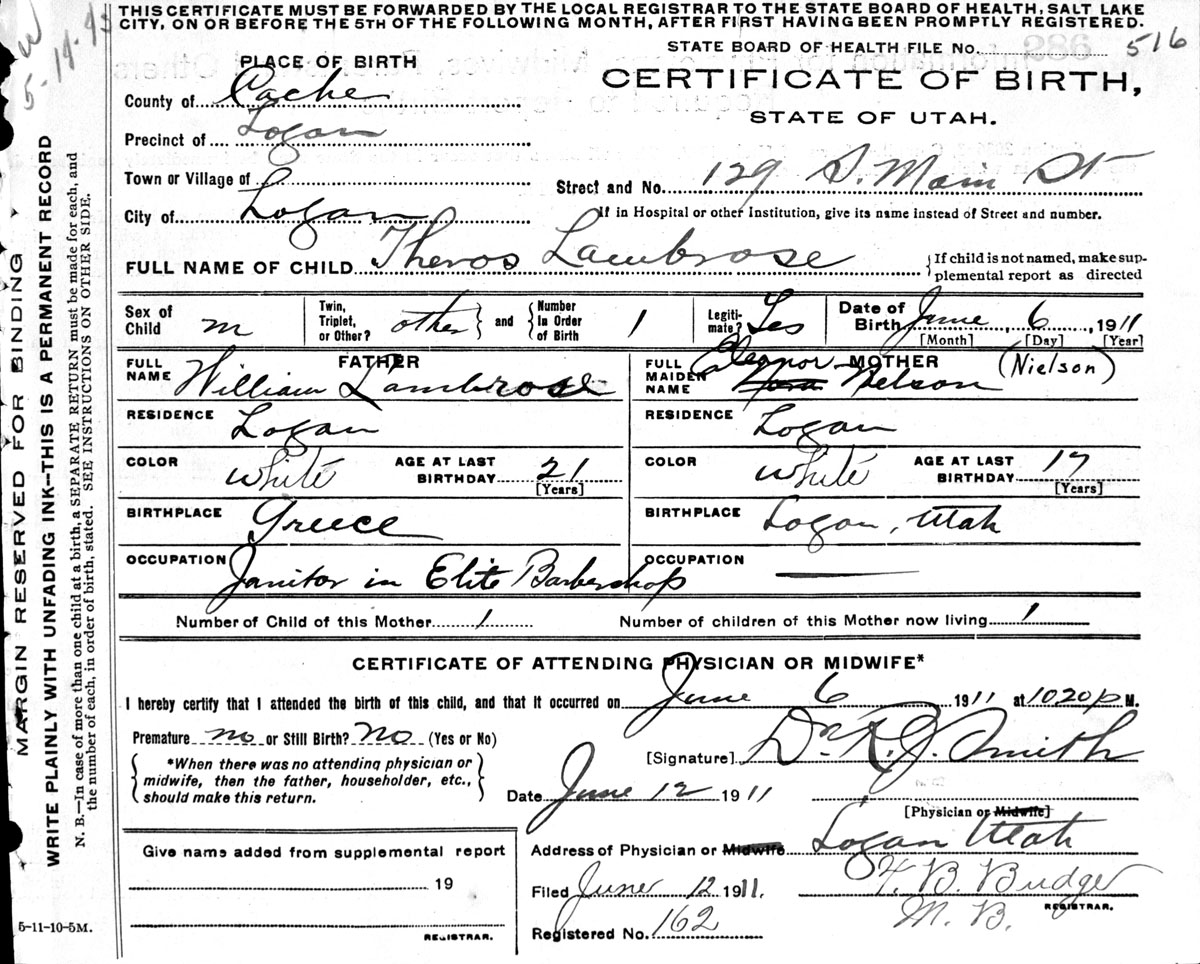 THIS CERTIFICATE MUST BE FORWARDED BY THE LOCAL REGISTRAR TO THE STATE BOARD OF HEALTH, SALT LAKE
CITY, ON OR BEFORE THE 5TH OF THE FOLLOWING MONTH, AFTER FIRST HAVING BEEN PROMPTLY REGISTERED.
5-14-43
STATE BOARD OF HEALTH FILE No. 516
PLACE OF BIRTH
CERTIFICATE OF BIRTH,
STATE OF UTAH.
County of Cache
Precinct of Logan
Town or Village of
Street and No. 129 S. Main St
City of Logan
If in Hospital or other Institution, give its name instead of Street and number.
FULL NAME OF CHILD Theros Lambrose
If child is not named, make sup-
plemental report as directed
Sex of Child m
Twin, Triplet, or Other? other and Number In Order of Birth 1
Legiti-mate? Yes
Date of Birth June 6, 1911
[Month] [Day] [Year]
FATHER
FULL NAME William Lambrose
MOTHER
FULL MAIDEN NAME Eleanor Nelson (Nielson)
RESIDENCE Logan
RESIDENCE Logan
COLOR White AGE AT LAST BIRTHDAY 21 [Years]
COLOR White AGE AT LAST BIRTHDAY 17 [Years]
BIRTHPLACE Greece
BIRTHPLACE Logan, Utah
OCCUPATION Janitor in Elite Barbershop
OCCUPATION
Number of Child of this Mother 1
Number of children of this Mother now living 1
CERTIFICATE OF ATTENDING PHYSICIAN OR MIDWIFE*
I hereby certify that I attended the birth of this child, and that it occurred on June 6 1911 at 1020p M.
Premature no or Still Birth? No (Yes or No)
[Signature] Dr. R. J. Smith
*When there was no attending physician or
midwife, then the father, householder, etc.,
should make this return.
Date June 12 1911
[Physician or Midwife]
Address of Physician or Midwife Logan Utah
Give name added from supplemental report
19
REGISTRAR.
Filed June 12 1911.
Registered No. 162
Budge
M. B.
REGISTRAR.
5-11-10-5M.
MARGIN RESERVED FOR BINDING
WRITE PLAINLY WITH UNFADING INK—THIS IS A PERMANENT RECORD
N. B.—In case of more than one child at a birth, a SEPARATE RETURN must be made for each, and
the number of each, in order of birth, stated. SEE INSTRUCTIONS ON OTHER SIDE.